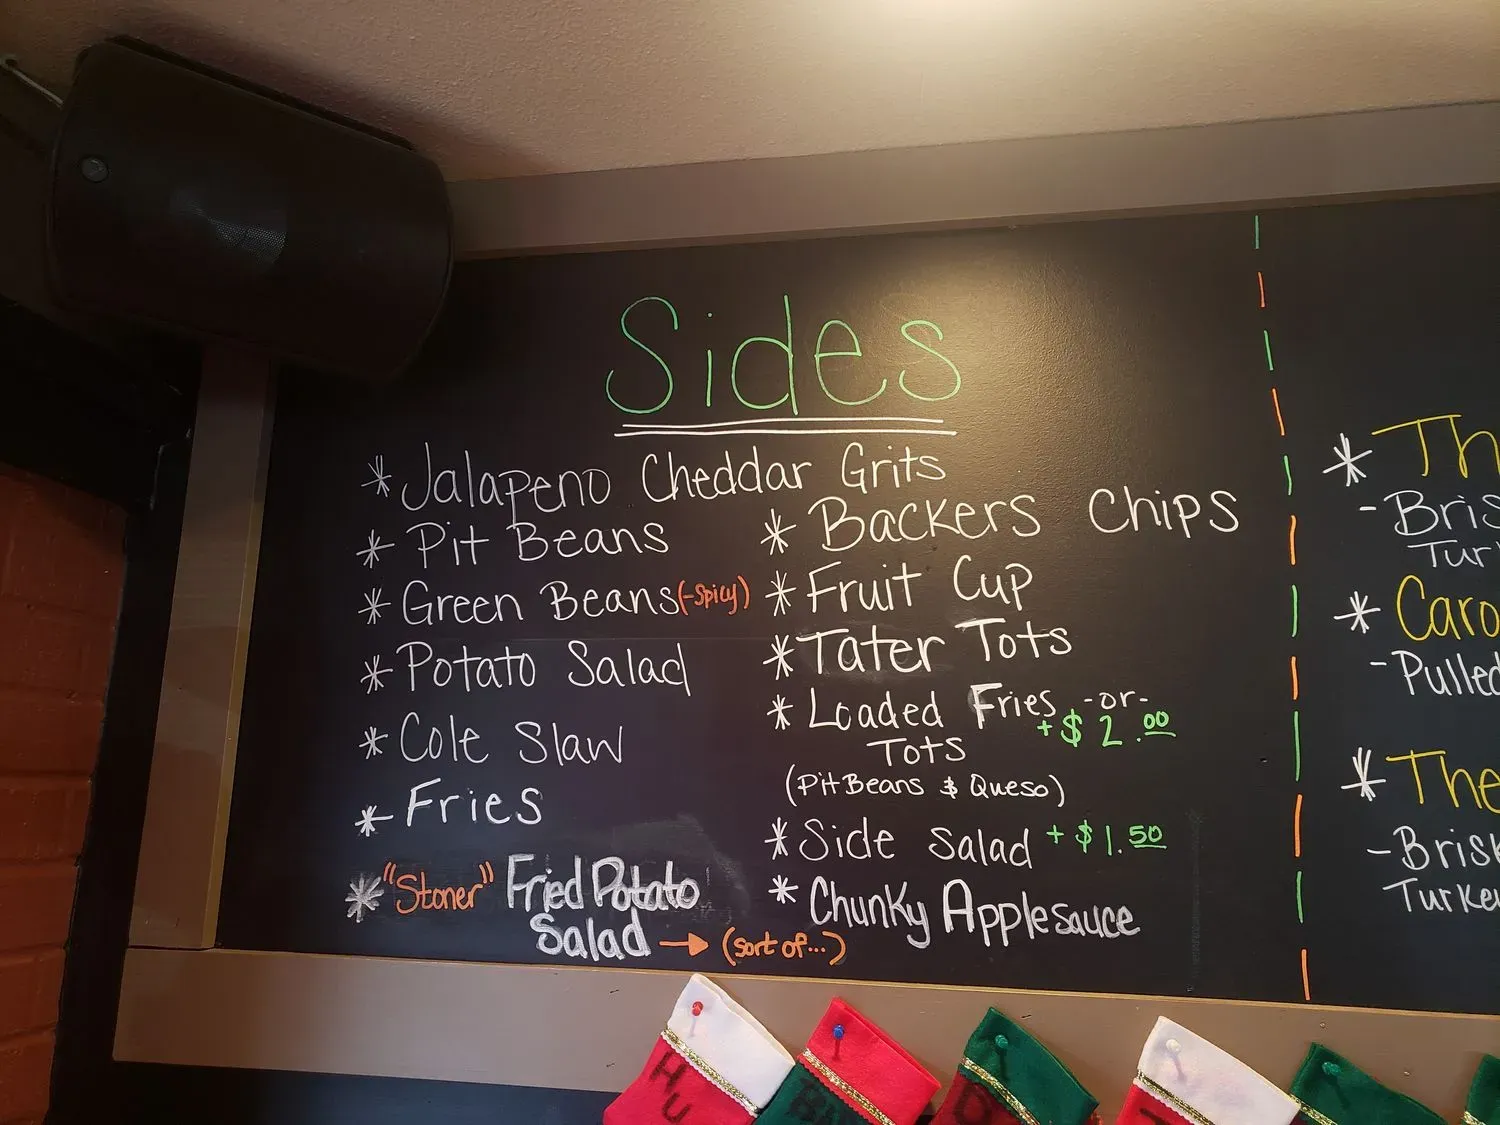 Sides
* Jalapeno Cheddar Grits
* Pit Beans
* Green Beans (-Spicy)
* Potato Salad
* Cole Slaw
* Fries
* "Stoner" Fried Potato
Salad → (sort of...)
* Backers Chips
* Fruit Cup
* Tater Tots
* Loaded Fries -or-
Tots + $2.00
(Pit Beans & Queso)
* Side Salad + $1.50
* Chunky Applesauce
* Th
- Bris
Turk
* Caro
- Pulled
* The
- Brisk
Turkey
Hu